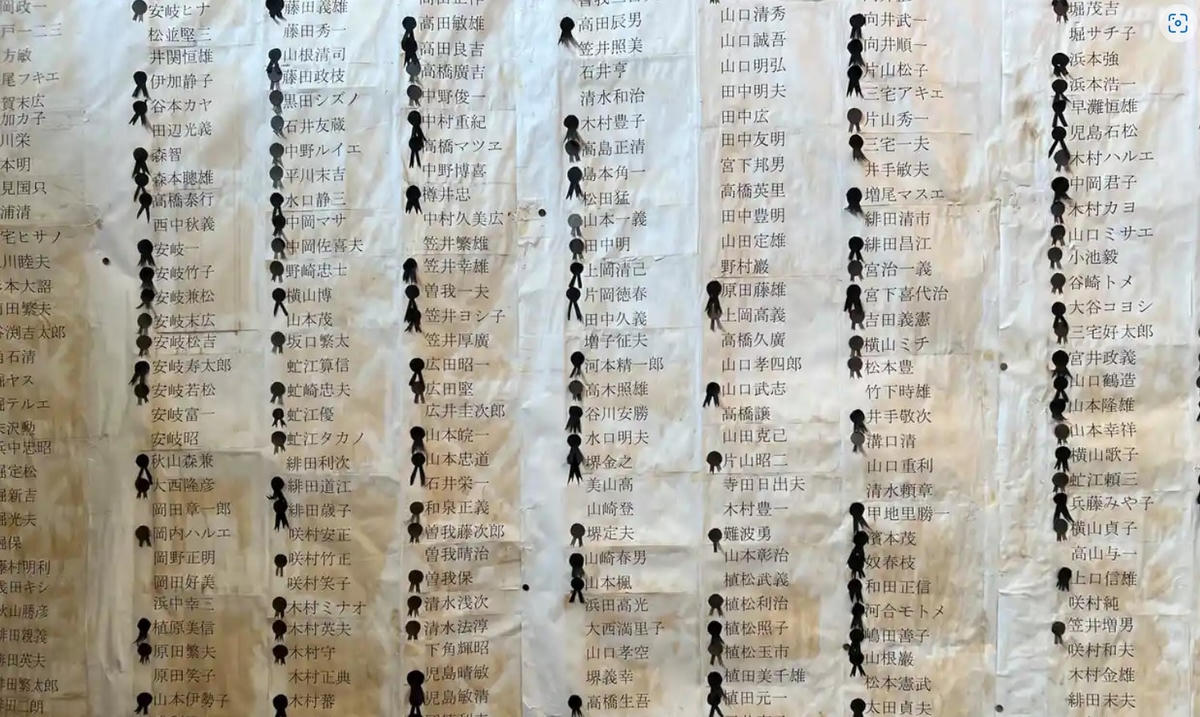 安岐ヒナ
松並堅三
井関恒雄
伊加静子
谷本カヤ
田辺光義
森智
森本聰雄
高橋泰行
西中秋義
安岐一
安岐竹子
安岐兼松
安岐末広
安岐松吉
安岐寿太郎
安岐若松
安岐富一
安岐昭
秋山森兼
大西隆彦
岡田章一郎
岡内ハルエ
岡野正明
岡田好美
浜中幸三
植原美信
原田繁夫
原田笑子
山本伊勢子
藤田義雄
藤田秀一
山根清司
藤田政枝
黒田シズノ
石井友蔵
中野ルイエ
平川末吉
水口静三
中岡マサ
中岡佐喜夫
野崎忠士
横山博
山本茂
坂口繁太
虻江算信
虻崎忠夫
虻江優
虻江タカノ
緋田利次
緋田道江
緋田歳子
咲村安正
咲村竹正
咲村笑子
木村ミナオ
木村英夫
木村守
木村正典
木村蕃
高田敏雄
高田良吉
高橋廣吉
中野俊一
中村重紀
高橋マツヱ
中野博喜
樽井忠
中村久美広
笠井繁雄
笠井幸雄
曽我一夫
笠井ヨシ子
笠井厚廣
広田昭一
広田堅
広井圭次郎
山本皖一
山本忠道
石井栄一
和泉正義
曽我藤次郎
曽我晴治
曽我保
清水浅次
清水法淳
下角輝昭
児島晴敏
児島敏清
高田辰男
笠井照美
石井亨
清水和治
木村豊子
高島正清
島本角一
松田猛
山本一義
田中明
上岡清己
片岡徳春
田中久義
増子征夫
河本精一郎
高木照雄
谷川安勝
水口明夫
堺金之
美山高
山崎登
堺定夫
山崎春男
山本楓
浜田高光
大西満里子
山口孝空
堺義幸
高橋生吾
山口清秀
山口誠吾
山口明弘
田中明夫
田中広
田中友明
宮下邦男
高橋英里
田中豊明
山田定雄
野村巌
原田藤雄
上岡高義
高橋久廣
山口孝四郎
山口武志
高橋譲
山田克己
片山昭二
寺田日出夫
木村豊一
難波勇
山本彰治
植松武義
植松利治
植松照子
植松玉市
植田美千雄
植田元一
向井武一
向井順一
片山松子
三宅アキエ
片山秀一
三宅一夫
井手敏夫
増尾マスエ
緋田清市
緋田昌江
宮治一義
宮下喜代治
吉田義憲
横山ミチ
松本豊
竹下時雄
井手敬次
溝口清
山口重利
清水頼章
甲地里勝一
濱本茂
奴春枝
和田正信
河合モトメ
嶋田善子
山根巖
松本憲武
太田貞夫
堀茂吉
堀サチ子
浜本強
浜本浩一
早灘恒雄
児島石松
木村ハルエ
中岡君子
木村カヨ
山口ミサエ
小池毅
谷崎トメ
大谷コヨシ
三宅好太郎
宮井政義
山口鶴造
山本隆雄
山本幸祥
横山歌子
虻江頼三
兵藤みや子
横山貞子
高山与一
上口信雄
咲村純
笠井増男
咲村和夫
木村金雄
緋田末夫